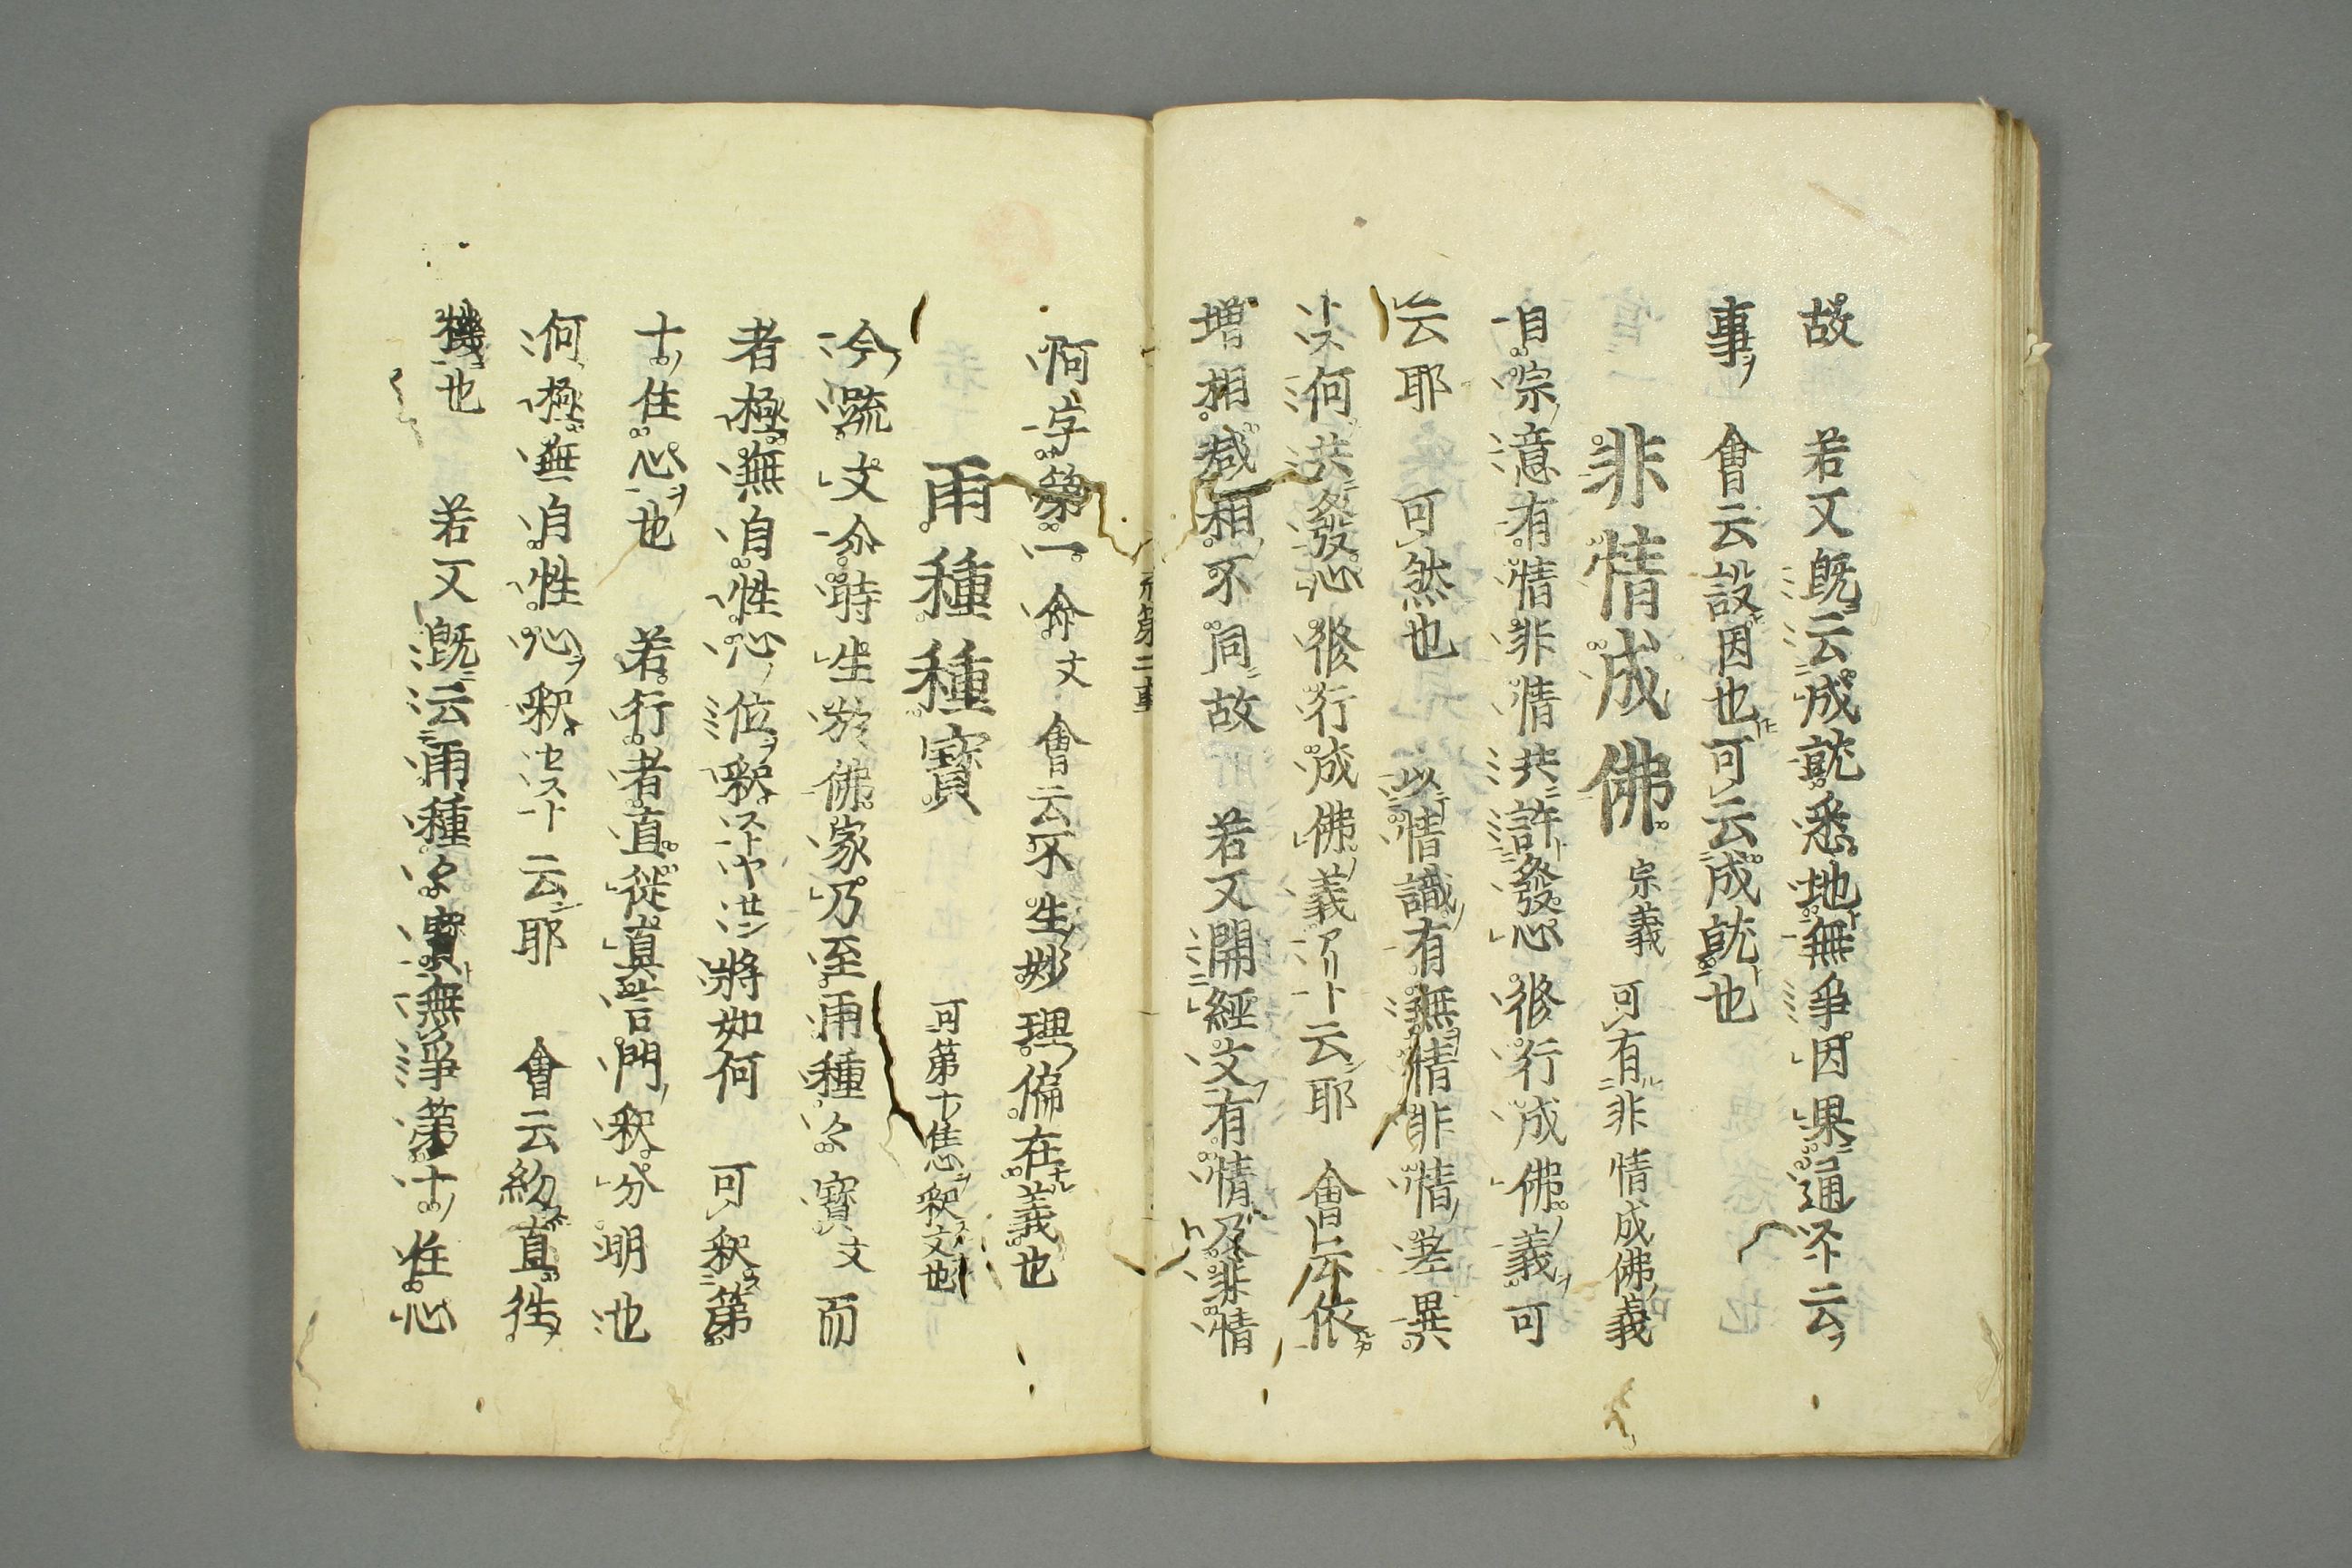 故　若又既云成就悉地無爭因果通ストニ云ヲ
事　會云設因也可云成就也
非情成佛　宗義　可有非情成佛義
自宗意有情非情共許發心修行成佛義可
云耶　可然也　以情識有無情非情差異
トス何共發心修行成佛義アリト云耶　會云依
増相減相不同故　若又開經文有情及非情
阿字第一命文　會云不生妙理偏在義也
雨種種寳　可第十住心釈文也
今疏文今時生於佛家乃至雨種々寳文而
者極無自性心位釈ストヤセン將如何　可釈第
十住心也　若行者直從真言門釈分明也
何極無自性心釈セスト云耶　會云約直往
機也　若又既云雨種々寳無爭第十住心